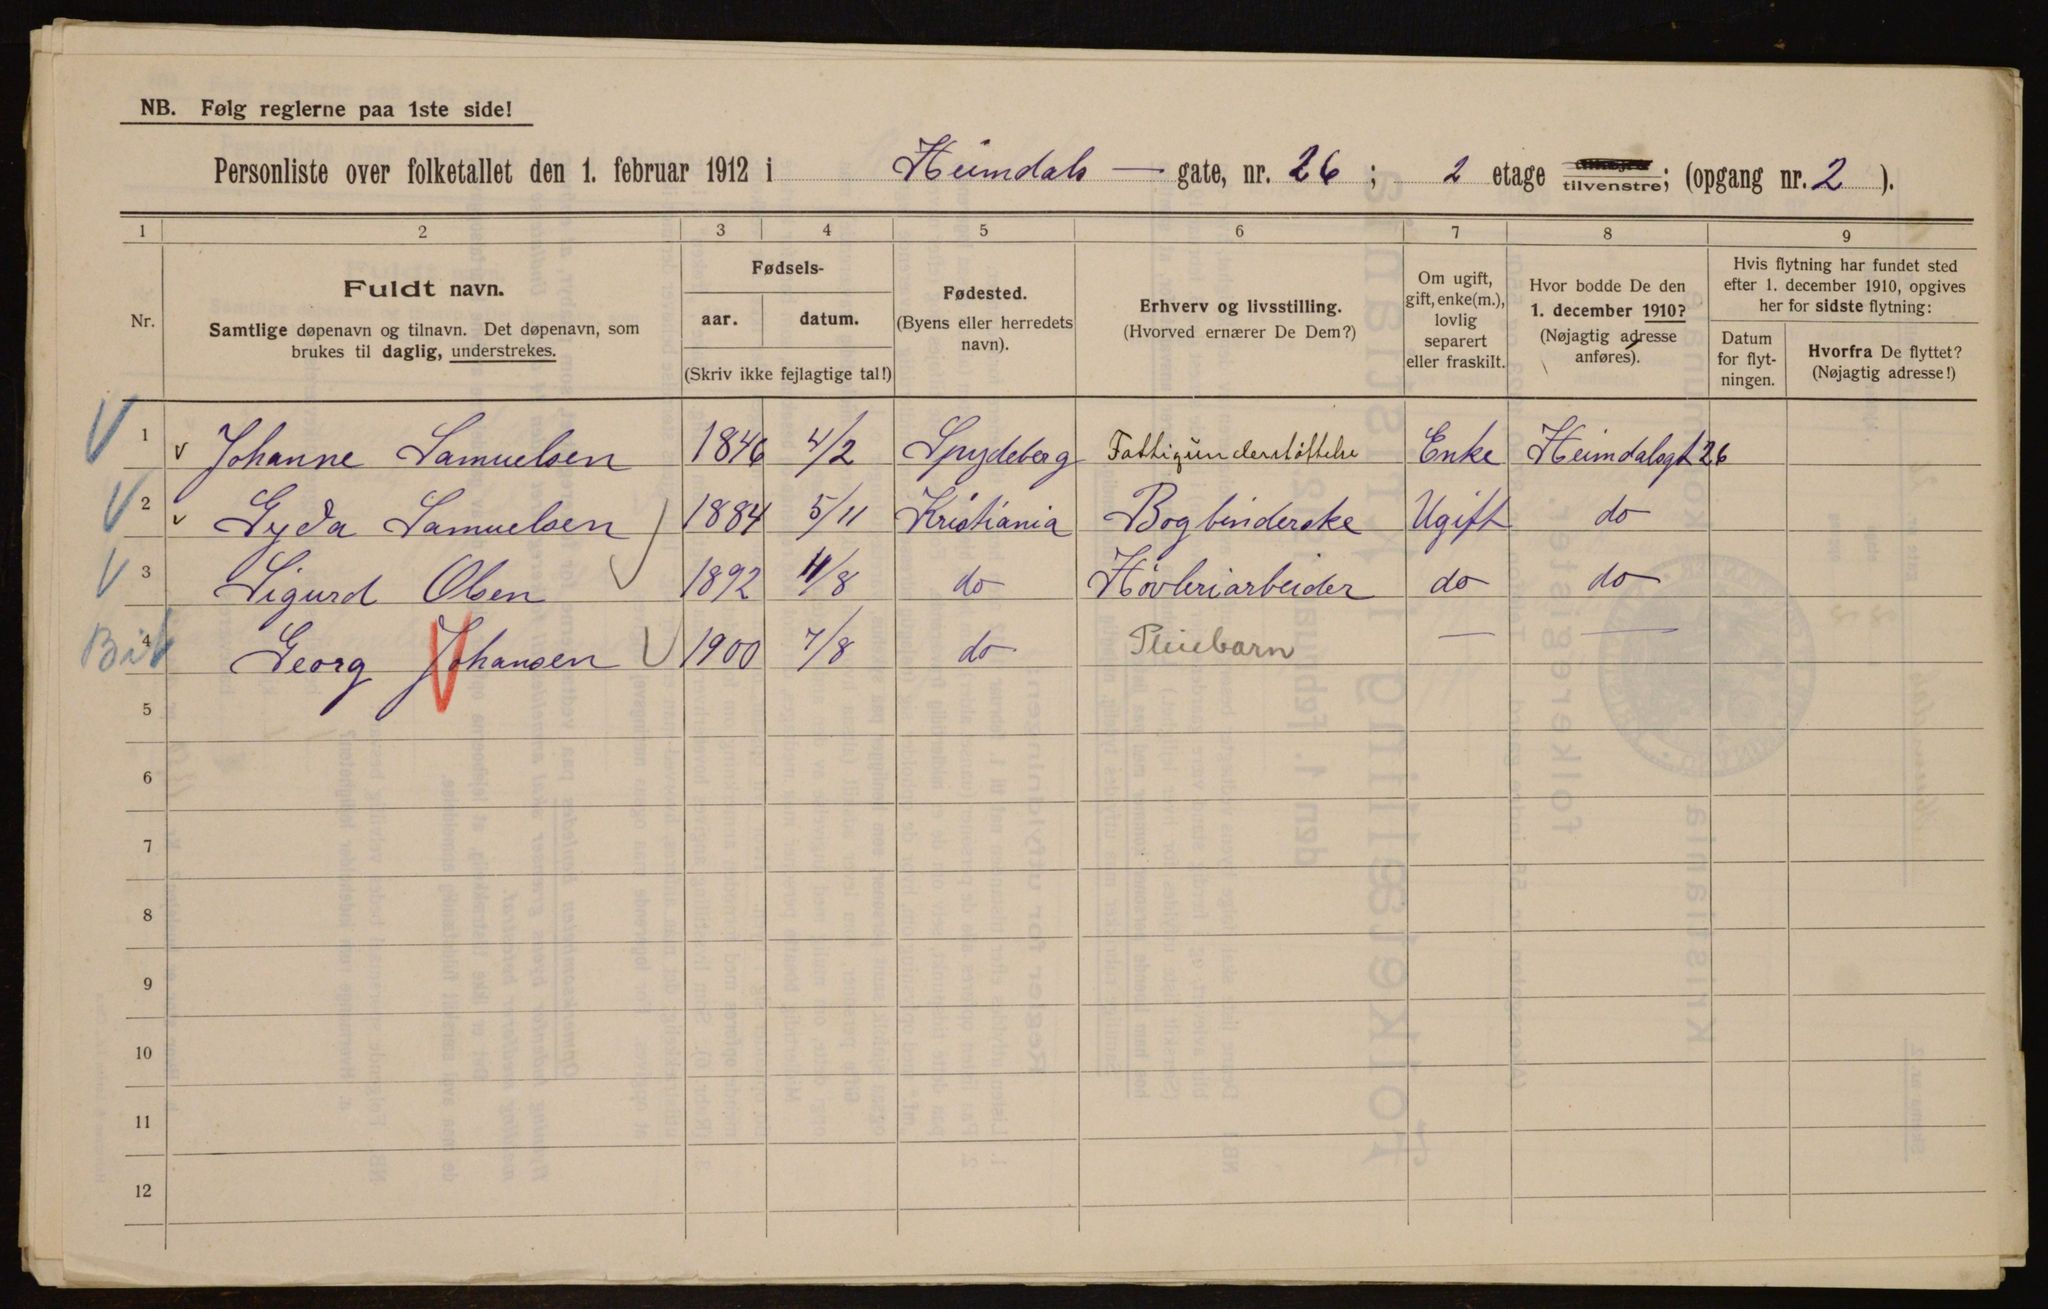 NB. Følg reglerne paa 1ste side!
Personliste over folketallet den 1. februar 1912 i Heimdals — gate, nr. 26 ; 2 etage tilvenstre; (opgang nr. 2 ).
1 2 3 4 5 6 7 8 9
Nr.
Fuldt navn.
Samtlige døpenavn og tilnavn. Det døpenavn, som
brukes til daglig, understrekes.
Fødsels-
aar. datum.
(Skriv ikke fejlagtige tal!)
Fødested.
(Byens eller herredets
navn).
Erhverv og livsstilling.
(Hvorved ernærer De Dem?)
Om ugift,
gift, enke(m.),
lovlig
separert
eller fraskilt.
Hvor bodde De den
1. december 1910?
(Nøjagtig adresse
anføres).
Hvis flytning har fundet sted
efter 1. december 1910, opgives
her for sidste flytning:
Datum
for flyt-
ningen.
Hvorfra De flyttet?
(Nøjagtig adresse!)
1 Johanne Samuelsen 1846 4/2 Spydeberg Fattigunderstøttelse Enke Heimdalsgt 26
2 Gyda Samuelsen 1884 5/11 Kristiania Bogbinderske Ugift do
3 Sigurd Olsen 1892 11/8 do Høvleriarbeider do do
4 Georg Johansen 1900 7/8 do Pleiebarn — —
5
6
7
8
9
10
11
12